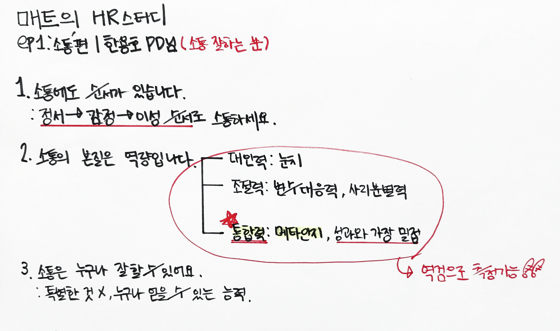 매트의 HR스터디
ep1:소통편 | 한용호 PD님 (소통 잘하는 분)
1. 소통에도 순서가 있습니다.
: 정서→감정→이성 순서로 소통하세요.
2. 소통의 본질은 역량입니다.
대인력: 눈치
조절력: 변수대응력, 사리분별력
통합력: 메타인지, 성과와 가장 밀접
역검으로 측정가능
3. 소통은 누구나 잘할 수 있어요.
: 특별한 것 X, 누구나 얻을 수 있는 능력.